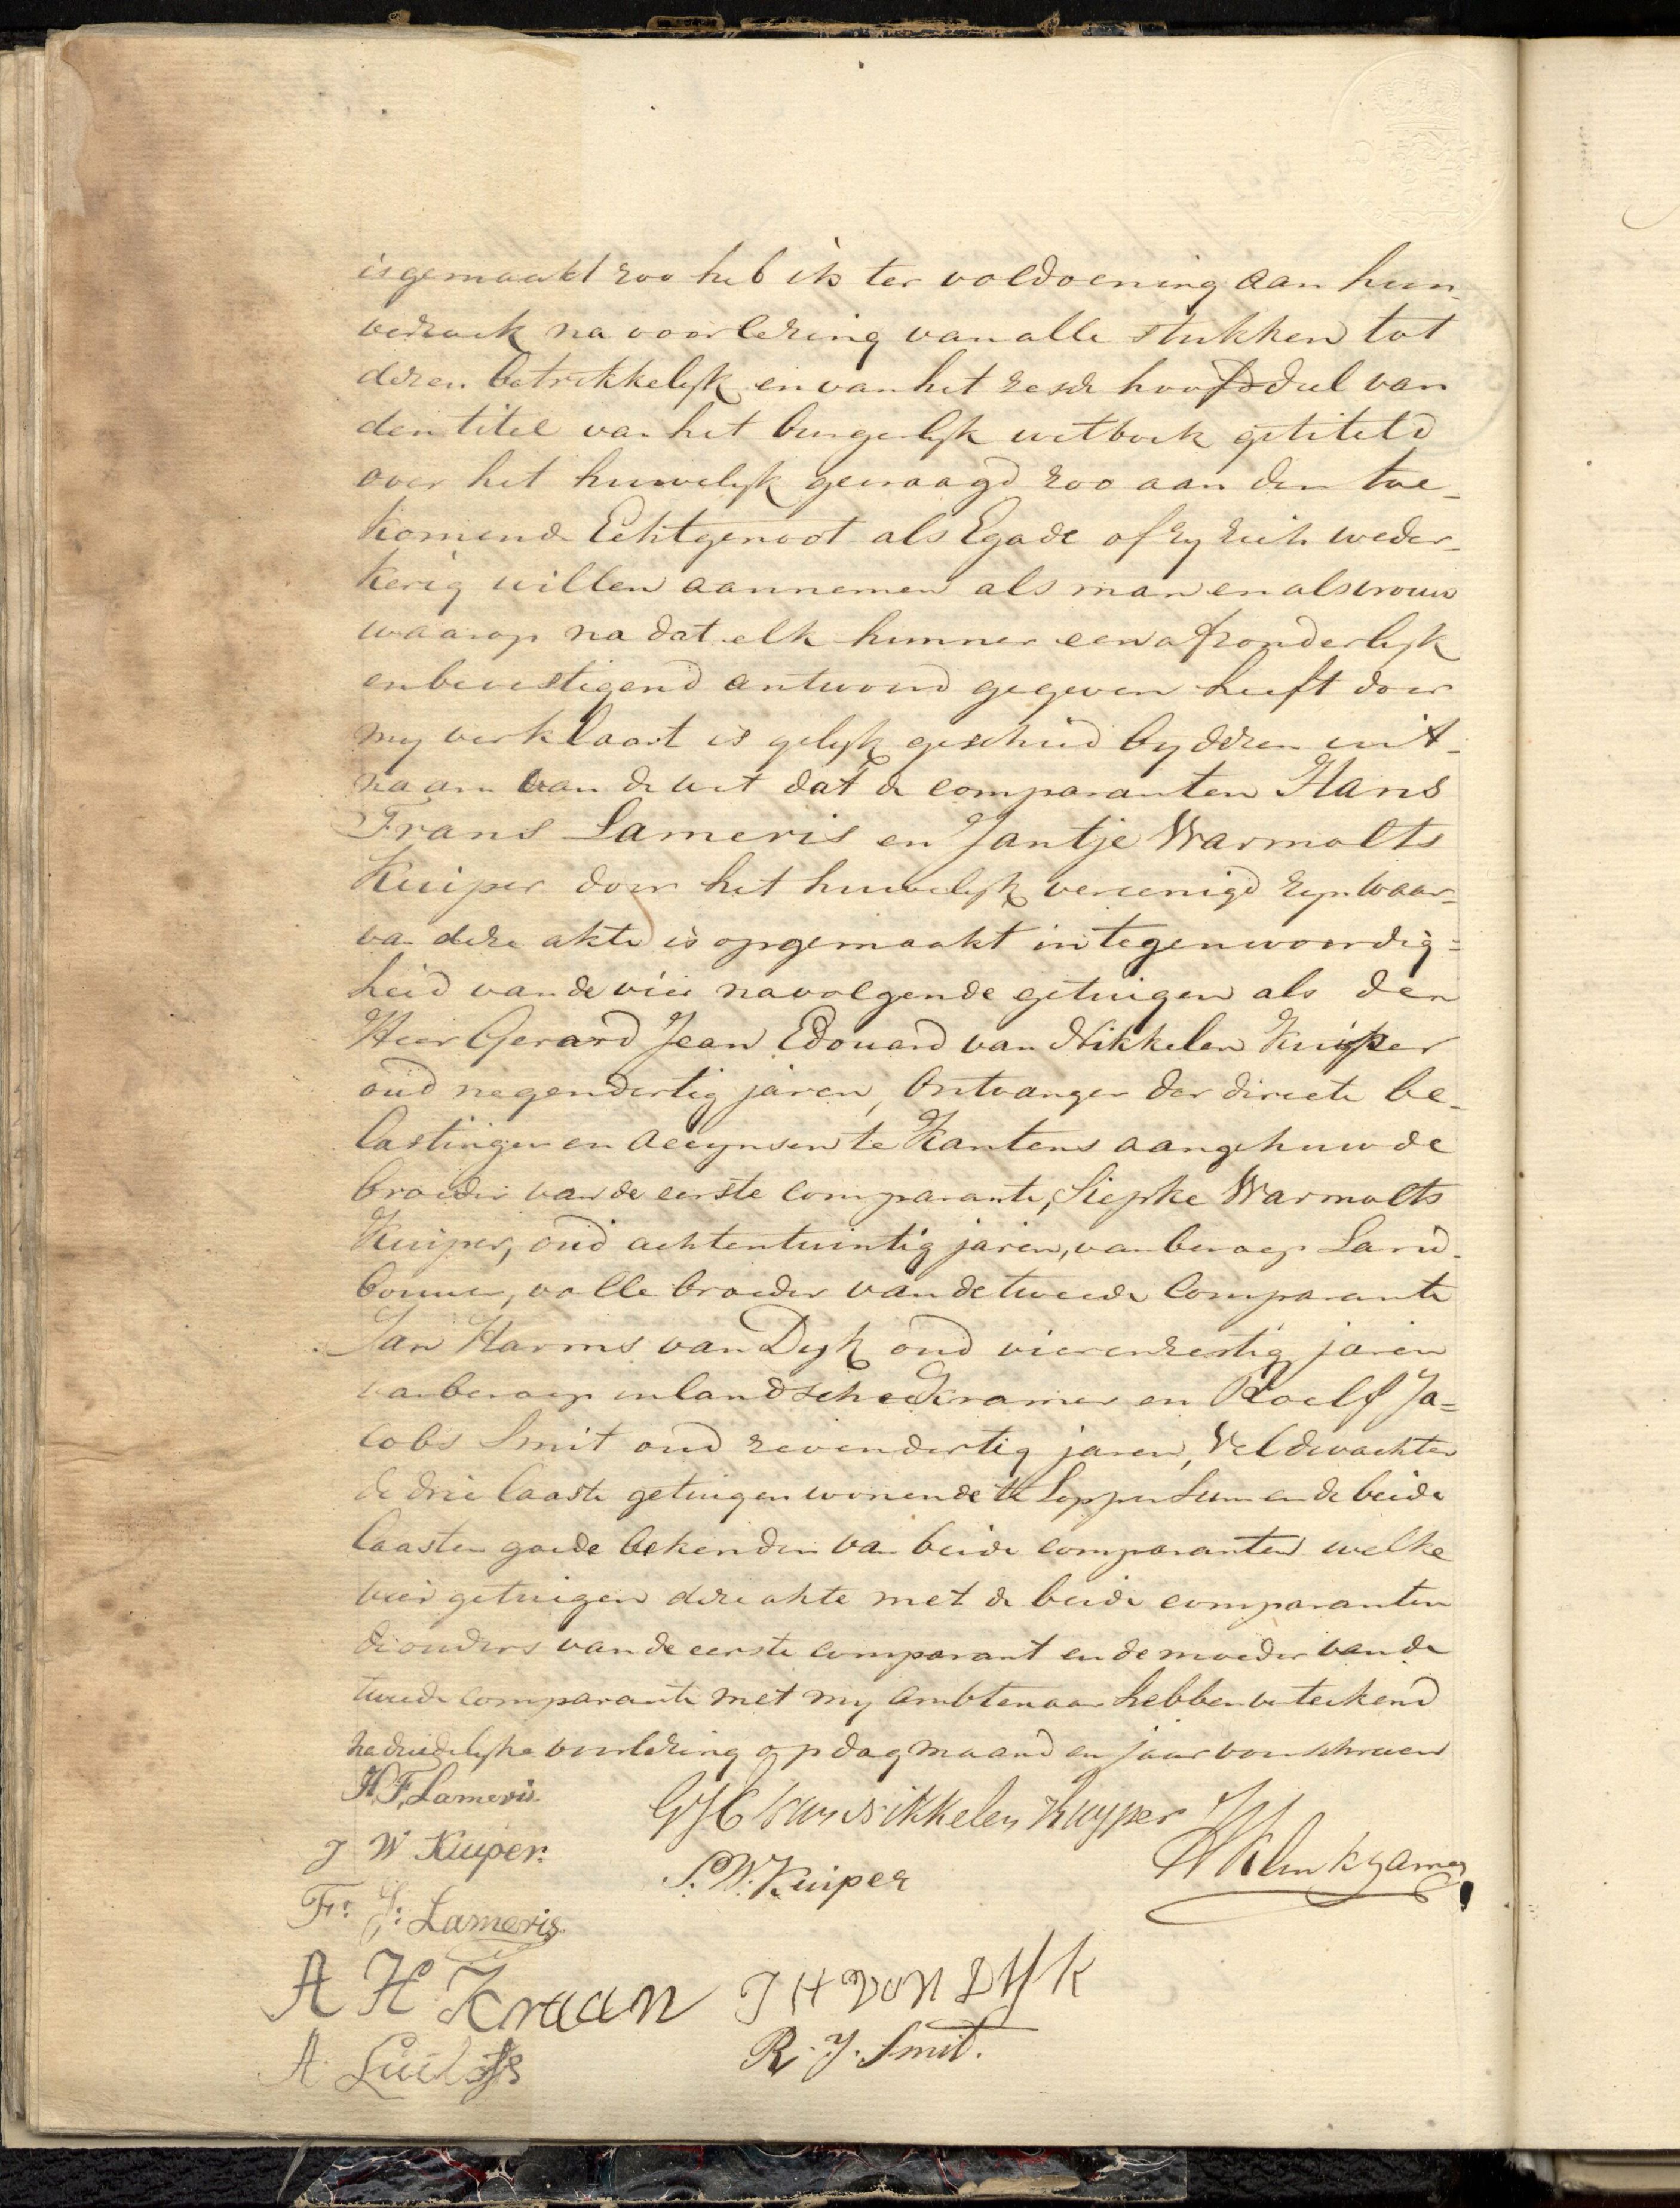 is gemaakt zoo heb ik ter voldoening aan hun
verzoek na voorlezing van alle stukken tot
dezen betrekkelyk en van het zesde hoofddeel van
den titel van het burgerlyk wetboek getiteld
over het huwelyk gevraagd zoo aan den toe-
komende Echtgenoot als Egade of zy zich weder-
kerig willen aannemen als man en als vrouw
waarop na dat elk hunner een afzonderlyk
en bevestigend antwoord gegeven heeft door
my verklaart is gelyk geschied by dezen uit-
naam van de wet dat de comparanten Hans
Frans Lameris en Jantje Warmolts
Kuiper door het huwelyk vereenigd zyn waar-
van deze akte is opgemaakt in tegenwoordig=
heid van de vier navolgende getuigen als den
Heer Gerard Jean Edouard van Nikkelen Kuijper
oud negendertig jaren, Ontvanger der directe be-
lastingen en Accynsen te Kantens aangehuwde
broeder van de eerste comparante, Siepke Warmolts
Kuiper, oud achtentwintig jaren, van beroep Land-
bouwer, volle broeder van de tweede Comparante
Jan Harms van Dyk oud vierenzestig jaren
van beroep inlandsche Kramer en Roelf Ja=
cobs Smit oud zevendertig jaren, Veldwachter
de drie laaste getuigen wonende te Loppersum en de beide
laasten goede bekenden van beide comparanten welke
vier getuigen deze akte met de beide comparanten
de ouders van de eerste comparant en de moeder van de
tweede comparante met my ambtenaar hebben verteekend
na duidelyke voorlezing op dag maand en jaar voorschreven
H. F. Lameris.
GJE van Nikkelen Kuyper
J W Kuiper.
S. W. Kuiper
Fs J: Lameris
A H Kraan
J H VAN DYK
A. Luilfs
R. J. Smit.